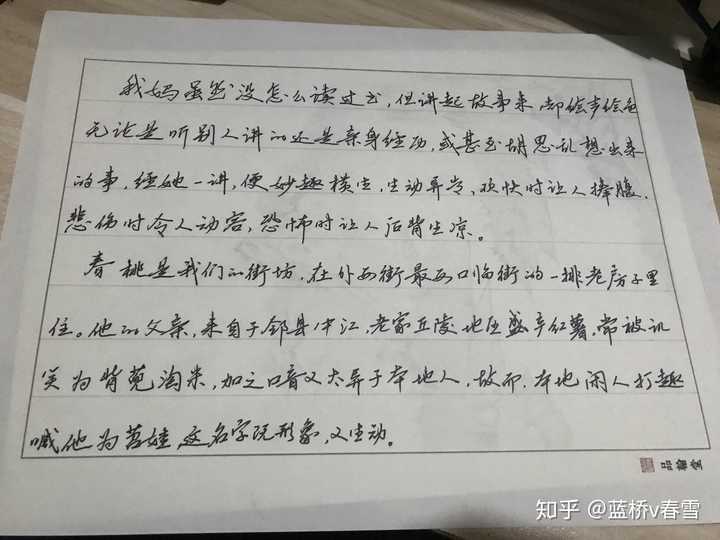 我妈虽然没怎么读过书，但讲起故事来却绘声绘色
无论是听别人讲的还是亲身经历，或甚至胡思乱想出来
的事，经她一讲，便妙趣横生，生动异常，欢快时让人捧腹，
悲伤时令人动容，恐怖时让人后背生凉。
春桃是我们的街坊，在外西街最西口临街的一排老房子里
住。他的父亲，来自于邻县中江，老家丘陵地区盛产红薯，常被讥
笑为背篼淘米，加之口音又大异于本地人，故而，本地闲人打趣
喊他为苕娃，这名字既形象，又生动。
品翰堂
知乎 @蓝桥v春雪